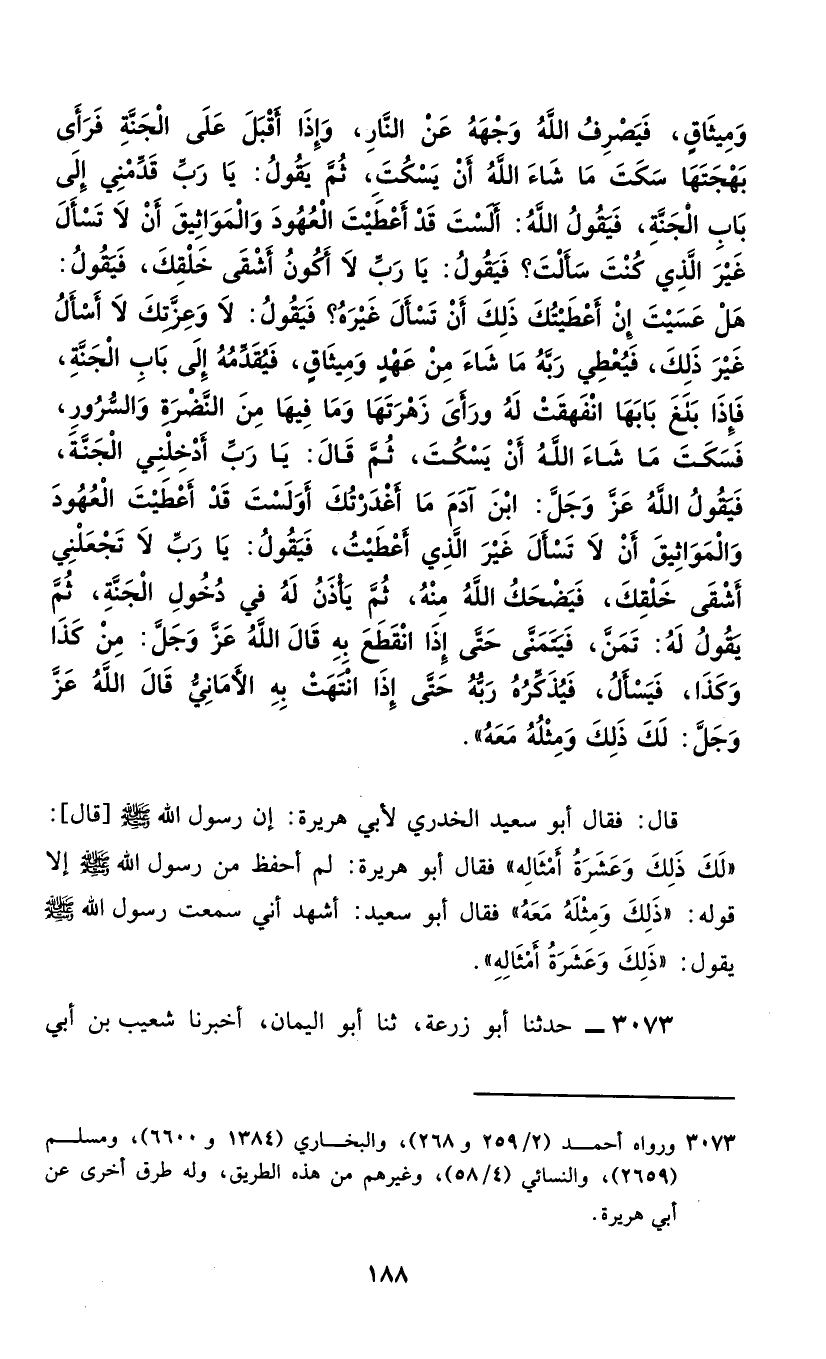 وَمِيثَاقٍ، فَيَصْرِفُ اللَّهُ وَجْهَهُ عَنْ النَّارِ، وَإِذَا أَقْبَلَ عَلَى الْجَنَّةِ فَرَأَى
بَهْجَتَهَا سَكَتَ مَا شَاءَ اللَّهُ أَنْ يَسْكُتَ، ثُمَّ يَقُولُ: يَا رَبِّ قَدِّمْنِي إِلَى
بَابِ الْجَنَّةِ، فَيَقُولُ اللَّهُ: أَلَسْتَ قَدْ أَعْطَيْتَ الْعُهُودَ وَالْمَوَاثِيقَ أَنْ لَا تَسْأَلَ
غَيْرَ الَّذِي كُنْتَ سَأَلْتَ؟ فَيَقُولُ: يَا رَبِّ لَا أَكُونُ أَشْقَى خَلْقِكَ، فَيَقُولُ:
هَلْ عَسَيْتَ إِنْ أَعْطَيْتُكَ ذَلِكَ أَنْ تَسْأَلَ غَيْرَهُ؟ فَيَقُولُ: لَا وَعِزَّتِكَ لَا أَسْأَلُ
غَيْرَ ذَلِكَ، فَيُعْطِي رَبَّهُ مَا شَاءَ مِنْ عَهْدٍ وَمِيثَاقٍ، فَيُقَدِّمُهُ إِلَى بَابِ الْجَنَّةِ،
فَإِذَا بَلَغَ بَابَهَا انْفَهِقَتْ لَهُ ورَأَى زَهْرَتَهَا وَمَا فِيهَا مِنَ النَّضْرَةِ وَالسُّرُورِ،
فَسَكَتَ مَا شَاءَ اللَّهُ أَنْ يَسْكُتَ، ثُمَّ قَالَ: يَا رَبِّ أَدْخِلْنِي الْجَنَّةَ،
فَيَقُولُ اللَّهُ عَزَّ وَجَلَّ: ابْنَ آدَمَ مَا أَغْدَرْتُكَ أَوَلَسْتَ قَدْ أَعْطَيْتَ الْعُهُودَ
وَالْمَوَاثِيقَ أَنْ لَا تَسْأَلَ غَيْرَ الَّذِي أَعْطَيْتُ، فَيَقُولُ: يَا رَبِّ لَا تَجْعَلْنِي
أَشْقَى خَلْقِكَ، فَيَضْحَكُ اللَّهُ مِنْهُ، ثُمَّ يَأْذَنُ لَهُ في دُخُولِ الْجَنَّةِ، ثُمَّ
يَقُولُ لَهُ: تَمَنَّ، فَيَتَمَنَّى حَتَّى إِذَا انْقَطَعَ بِهِ قَالَ اللَّهُ عَزَّ وَجَلَّ: مِنْ كَذَا
وَكَذَا، فَيَسْأَلُ، فَيُذَكِّرُهُ رَبُّهُ حَتَّى إِذَا انْتَهَتْ بِهِ الأَمَانِيُّ قَالَ اللَّهُ عَزَّ
وَجَلَّ: لَكَ ذَلِكَ وَمِثْلُهُ مَعَهُ».
قال: فقال أبو سعيد الخدري لأبي هريرة: إن رسول الله ﷺ [قال]:
«لَكَ ذَلِكَ وَعَشَرَةُ أَمْثَالِه» فقال أبو هريرة: لم أحفظ من رسول الله ﷺ إلا
قوله: «ذَلِكَ وَمِثْلَهُ مَعَهُ» فقال أبو سعيد: أشهد أني سمعت رسول الله ﷺ
يقول: «ذَلِكَ وَعَشَرَةُ أَمْثَالِهِ».
٣٠٧٣ ــ حدثنا أبو زرعة، ثنا أبو اليمان، أخبرنا شعيب بن أبي
٣٠٧٣ ورواه أحمد (٢/ ٢٥٩ و ٢٦٨)، والبخاري (١٣٨٤ و ٦٦٠٠)، ومسلم
(٢٦٥٩)، والنسائي (٤/ ٥٨)، وغيرهم من هذه الطريق، وله طرق أخرى عن
أبي هريرة.
١٨٨